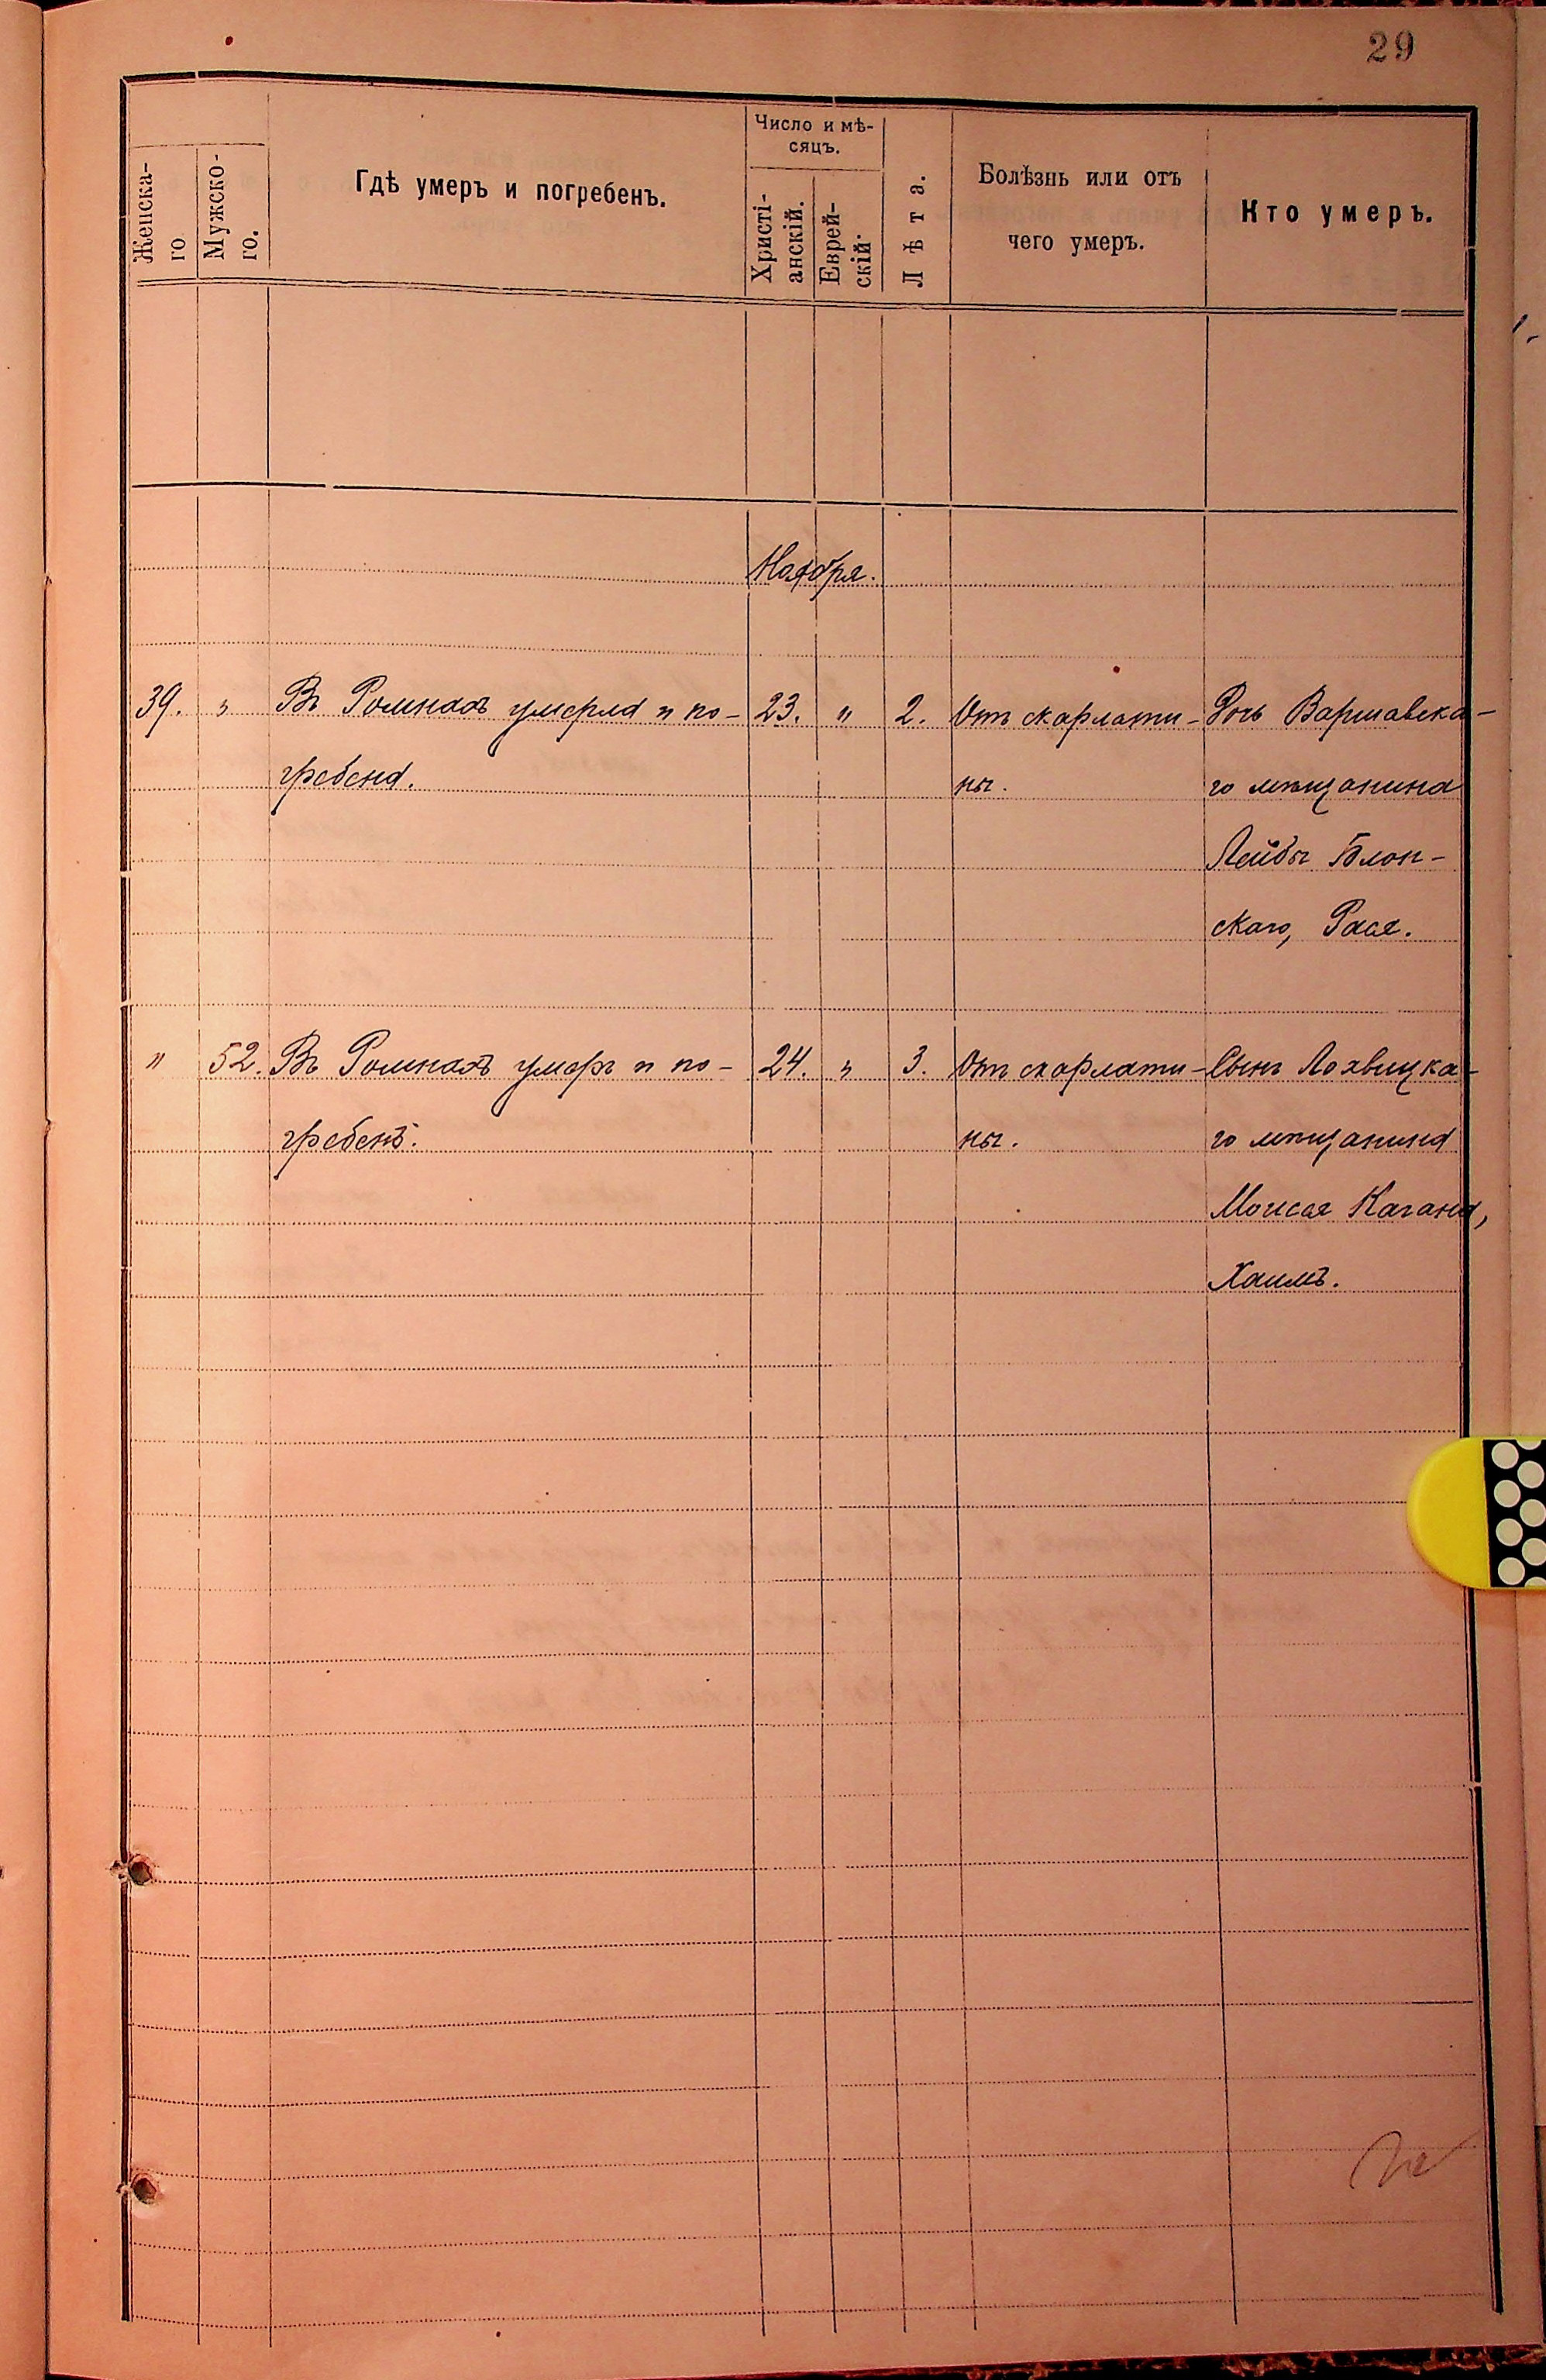 29
Женска-
го
Мужско-
го.
Гдѣ умеръ и погребенъ.
Число и мѣ-
сяцъ.
Христі-
анскій.
Еврей-
скій.
Лѣта.
Болѣзнь или отъ
чего умеръ.
Кто умеръ.
Ноября.
39. " Въ Ромнахъ умерла и по- 23. " 2. Отъ скарлати- Дочь Варшавска-
гребена. ны. го мѣщанина
Лейбы Блон-
скаго, Рася.
" 52. Въ Ромнахъ умеръ и по- 24. " 3. Отъ скарлати- Сынъ Лохвицка-
гребенъ. ны. го мѣщанина
Моисея Кагана,
Хаимъ.